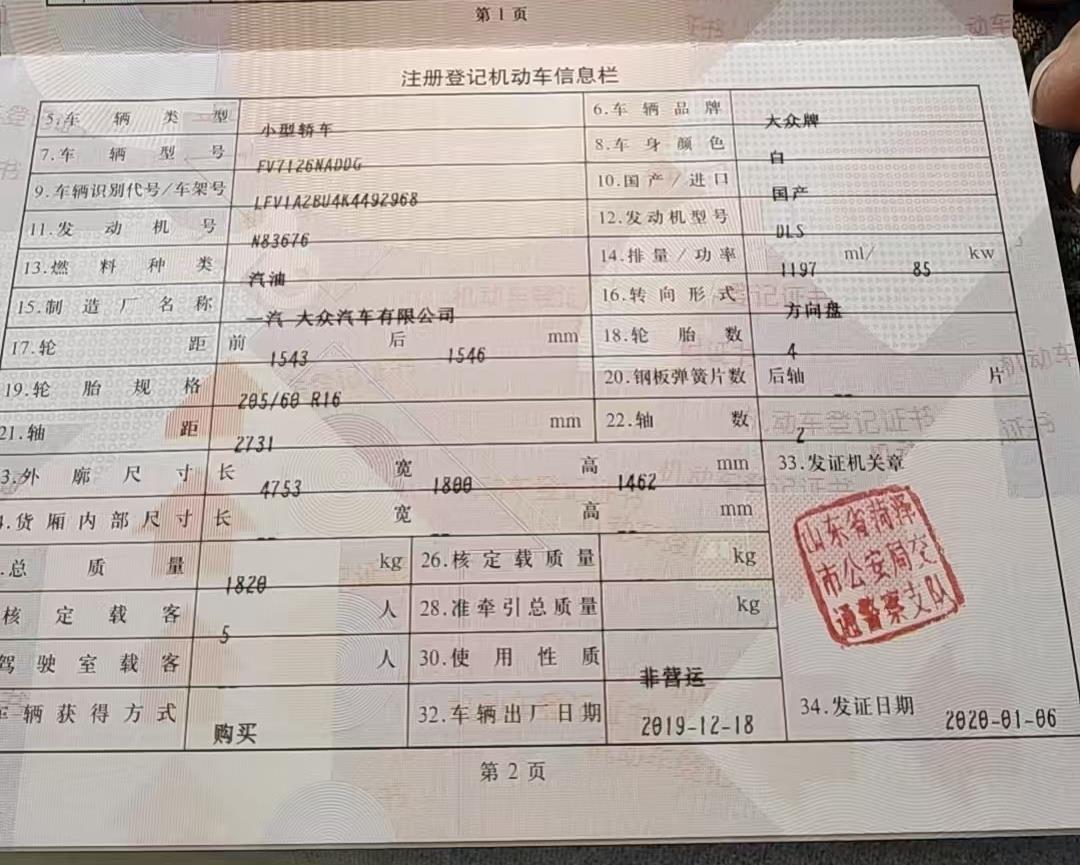 第1页
注册登记机动车信息栏
5.车辆类型 小型轿车 6.车辆品牌 大众牌
7.车辆型号 FV7126NADDG 8.车身颜色 白
9.车辆识别代号/车架号 LFV1A2BU4K4492968 10.国产/进口 国产
11.发动机号 N83676 12.发动机型号 DLS
13.燃料种类 汽油 14.排量/功率 1197 ml/ 85 kw
15.制造厂名称 一汽 大众汽车有限公司 16.转向形式 方向盘
17.轮距 前 1543 后 1546 mm 18.轮胎数 4
19.轮胎规格 205/60 R16 20.钢板弹簧片数 后轴 -- 片
21.轴距 2731 mm 22.轴数 2
3.外廓尺寸 长 4753 宽 1800 高 1462 mm 33.发证机关章
4.货厢内部尺寸 长 -- 宽 -- 高 -- mm
山东省菏泽
市公安局交
通警察支队
.总质量 1820 kg 26.核定载质量 kg
核定载客 5 人 28.准牵引总质量 kg
驾驶室载客 人 30.使用性质 非营运
车辆获得方式 购买 32.车辆出厂日期 2019-12-18 34.发证日期 2020-01-06
第2页